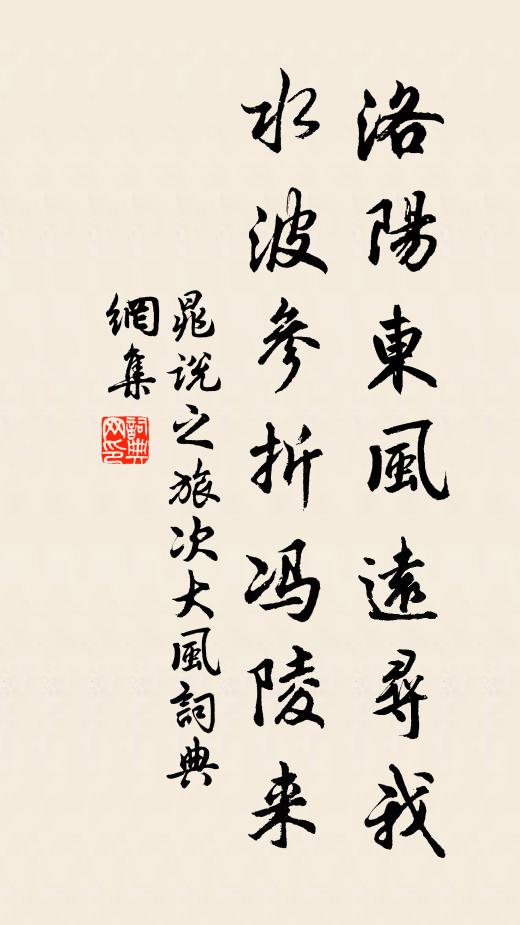 洛陽東風遠尋我
水波參折馮陵来
晁說之旅次大風詞典
網集
詞典
网印